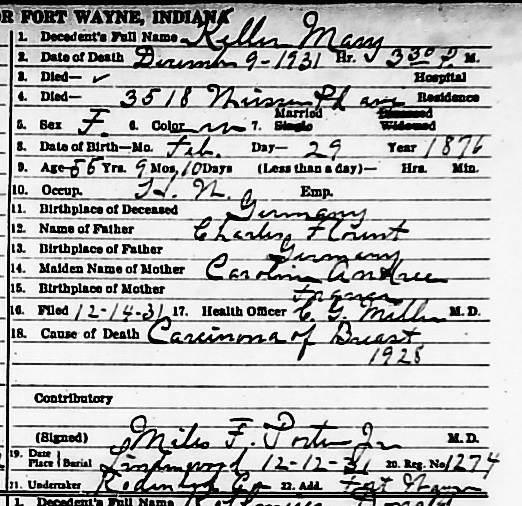 OR FORT WAYNE, INDIANA
1. Decedent's Full Name Keller Mary
2. Date of Death December 9-1931 Hr. 3 30 P. M.
3. Died— ✓ Hospital
4. Died— 3518 ave Residence
Married Diseased
5. Sex F. 6. Color w 7. Single Widowed
8. Date of Birth—Mo. Feb. Day— 29 Year 1876
9. Age 55 Yrs. 9 Mos. 10 Days (Less than a day)— Hrs. Min.
10. Occup. H. W. Emp.
11. Birthplace of Deceased Germany
12. Name of Father Charles
13. Birthplace of Father Germany
14. Maiden Name of Mother Caroline
15. Birthplace of Mother
16. Filed 12-14-31 17. Health Officer C. G. Miller M. D.
18. Cause of Death Carcinoma of Breast
1928
Contributory
(Signed) Miles F. Porter Jr M. D.
19. Date Place } Burial Lindenwood 12-12-31 20. Reg. No 1274
21. Undertaker 22. Add. Fort Wayne
1. Decedent's Full Name